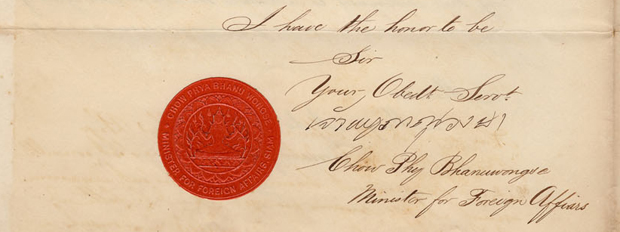 I have the honor to be
Sir
Your Obedt Servt
Chow Phy Bhanuwongse
Minister for Foreign Affiars
CHOW PHYA BHANU WONGSE
MINISTER FOR FOREIGN AFFAIRS SIAM